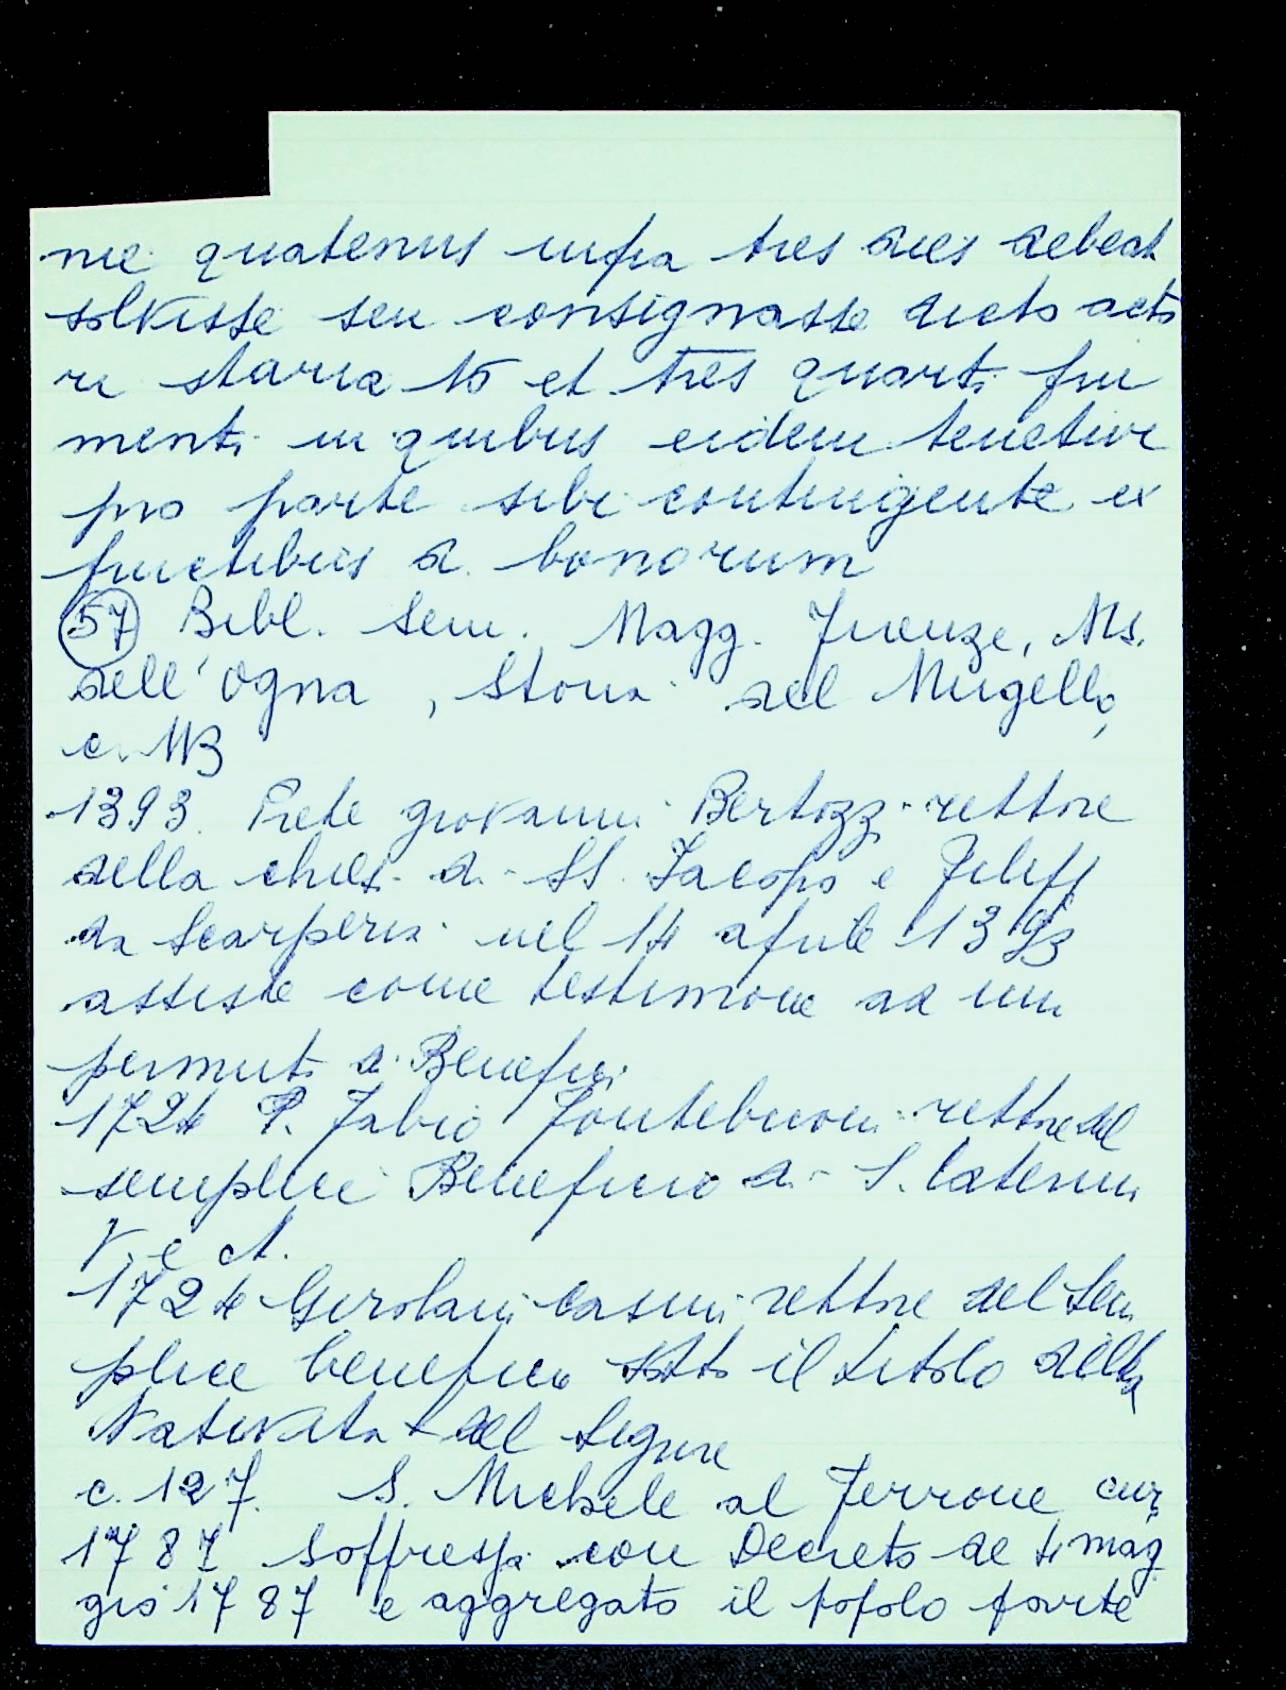 nie quatenus infra tres dies debeat
solvisse seu consignasse dicto acto
ri staria 10 et tres quarti fru
menti in quibus eidem tenetur
pro parte sibi contingente ex
fructibus d. bonorum
(57) Bibl. Sem. Magg. Firenze, Ms.
dell'Ogna, Storia del Mugello,
c. 113
1393. Prete Giovanni Bertozzi rettore
della chiesa di SS. Jacopo e Filipp
da Scarperia nel 14 aprile 1393
assiste come testimone ad una
permuta di Benefici
1724 P. Fabio Fontebuoni rettore del
semplice Beneficio di S. Caterina
V. e M.
1724 Girolami Casini rettore del Sem
plice beneficio sotto il titolo della
Natività del Signore
c. 127. S. Michele al Ferrone cura
1787 Soppressa con Decreto de 4 mag
gio 1787 e aggregato il popolo parte